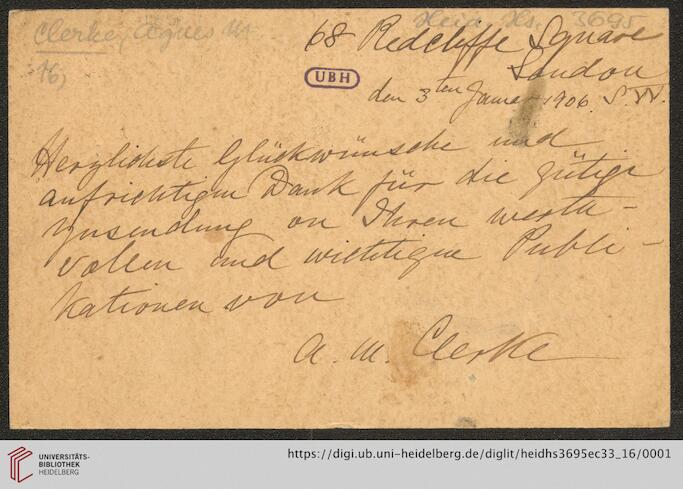 Clerke, Agnes M.
16)
Heid. Hs. 3695
68 Redcliffe Square
London
UBH
den 3ten Januar 1906. S.W.
Herzlichste Glückwünsche und
aufrichtigen Dank für die gütige
Zusendung on Ihren werth-
vollen und wichtigen Publi-
kationen von
A. M. Clerke
UNIVERSITÄTS-
BIBLIOTHEK
HEIDELBERG
https://digi.ub.uni-heidelberg.de/diglit/heidhs3695ec33_16/0001